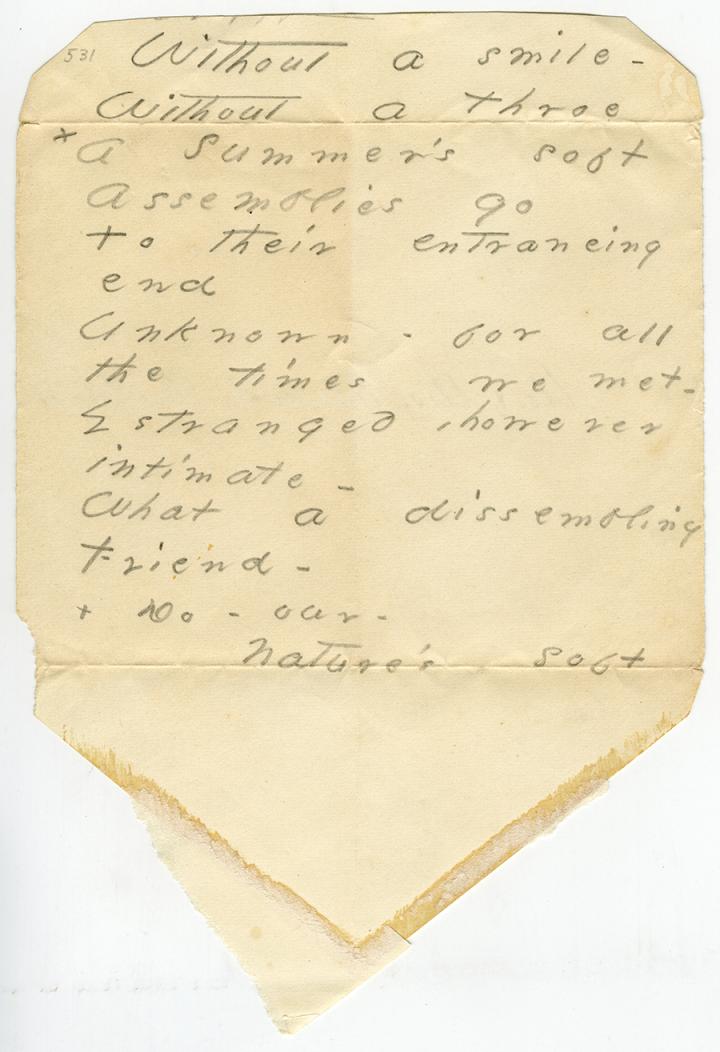 531
Without a smile -
Without a throe
+ A Summer's soft
Assemblies go
to their entrancing
end
Unknown - for all
the times we met -
Estranged, however
intimate -
What a dissembling
Friend -
+ Do - our -
Nature's soft